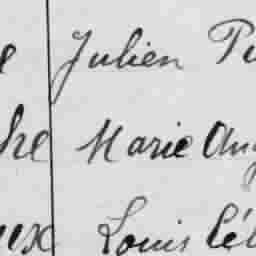 Julien
he Marie Ang
eux Louis Cél